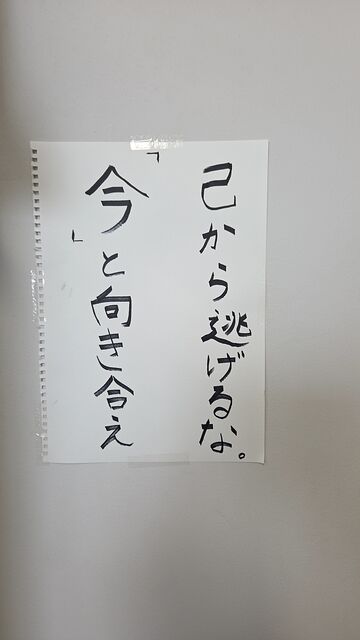 己から逃げるな。
「今」と向き合え